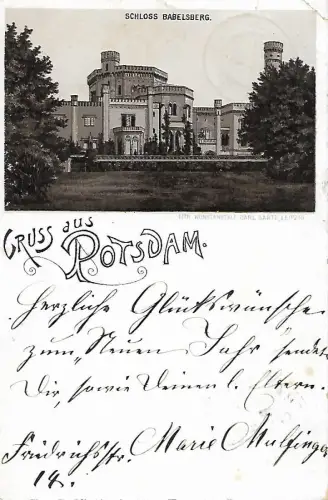 SCHLOSS BABELSBERG.
LITH. KUNSTANSTALT CARL GARTE, LEIPZIG
GRUSS aus
POTSDAM.
Herzliche Glückwünsche
zum "Neuen Jahr" sendet
Dir, sowie Deinen l. Eltern.
Friedrichstr. Marie Mulfinger
12.